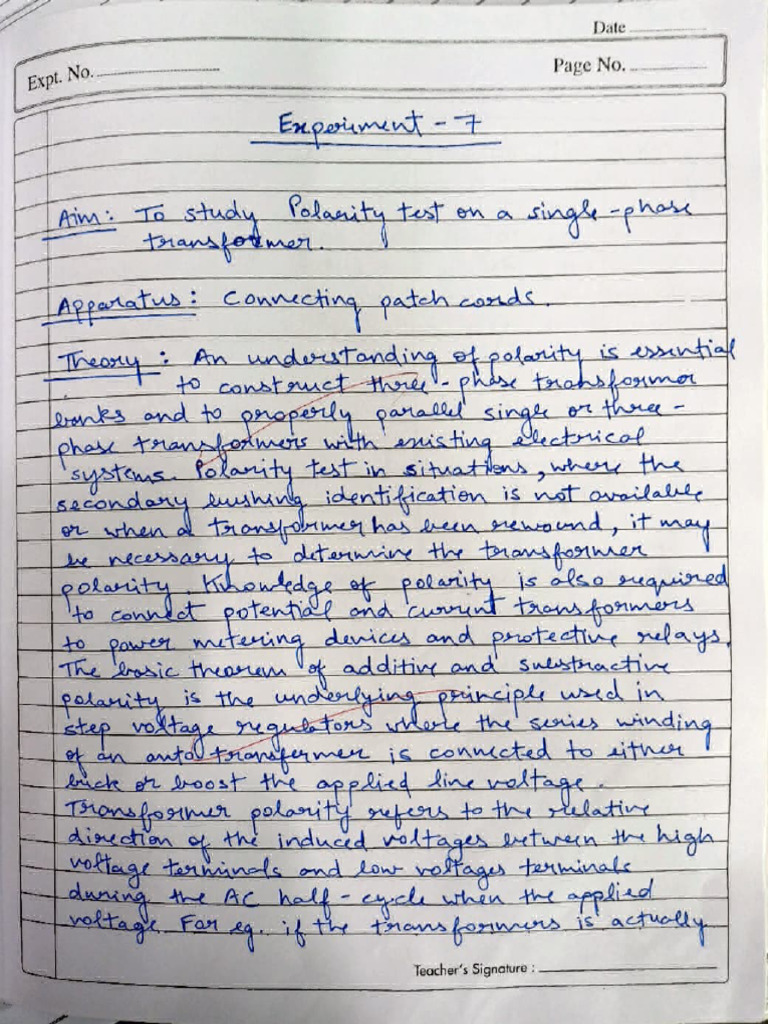 Date
Expt. No.
Page No.
Experiment - 7
Aim: To study Polarity test on a single-phase
transformer.
Apparatus: Connecting patch cords.
Theory: An understanding of polarity is essential
to construct three-phase transformer
banks and to properly parallel single or three-
phase transformers with existing electrical
systems. Polarity test in situations, where the
secondary bushing identification is not available
or when a transformer has been rewound, it may
be necessary to determine the transformer
polarity. Knowledge of polarity is also required
to connect potential and current transformers
to power metering devices and protective relays.
The basic theorem of additive and substractive
polarity is the underlying principle used in
step voltage regulators where the series winding
of an auto transfermer is connected to either
buck or boost the applied line voltage.
Transformer polarity refers to the relative
direction of the induced voltages between the high
voltage terminals and low voltages terminals
during the AC half-cycle when the applied
voltage. For eg. if the transformers is actually
Teacher's Signature :